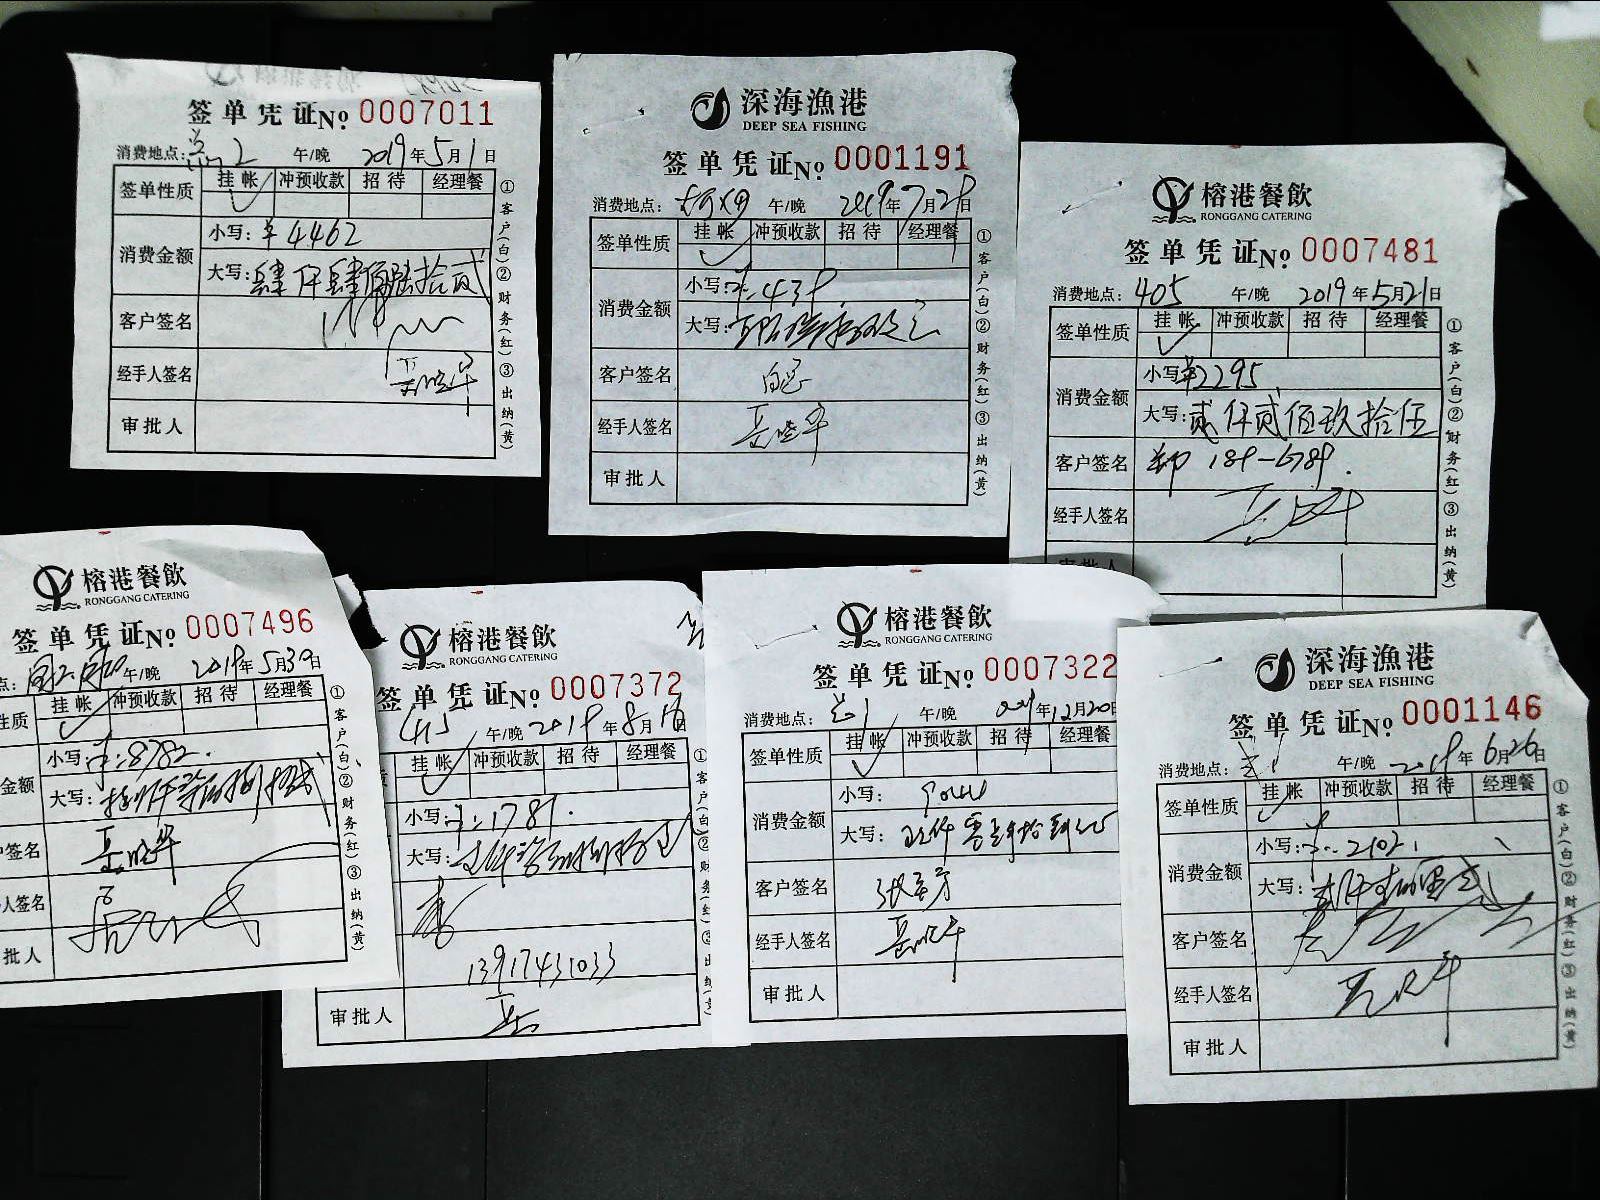 签单凭证No. 0007011
消费地点: 2 午/晚 2019年5月1日
签单性质 挂帐 冲预收款 招待 经理餐
消费金额 小写: ¥4462
大写: 肆仟肆佰陆拾贰
客户签名
经手人签名
审批人
①客户(白)②财务(红)③出纳(黄)
深海漁港
DEEP SEA FISHING
签单凭证No. 0001191
消费地点: 午/晚 2019年7月29日
签单性质 挂帐 冲预收款 招待 经理餐
消费金额 小写: ¥:439
大写:
客户签名
经手人签名
审批人
①客户(白)②财务(红)③出纳(黄)
榕港餐飲
RONGGANG CATERING
签单凭证No. 0007481
消费地点: 405 午/晚 2019年5月21日
签单性质 挂帐 冲预收款 招待 经理餐
消费金额 小写: ¥2295
大写: 贰仟贰佰玖拾伍
客户签名 189-6789.
经手人签名
审批人
①客户(白)②财务(红)③出纳(黄)
榕港餐飲
RONGGANG CATERING
签单凭证No. 0007496
点: 午/晚 2019年5月30日
性质 挂帐 冲预收款 招待 经理餐
金额 小写: ¥:8782.
大写:
户签名 岳晓华
人签名
批人
①客户(白)②财务(红)③出纳(黄)
榕港餐飲
RONGGANG CATERING
签单凭证No. 0007372
午/晚 2019年8月18日
挂帐 冲预收款 招待 经理餐
小写: ¥:1781.
大写:
13917431033
审批人
①客户(白)②财务(红)③出纳(黄)
榕港餐飲
RONGGANG CATERING
签单凭证No. 0007322
消费地点: 午/晚 年12月20日
签单性质 挂帐 冲预收款 招待 经理餐
消费金额 小写:
大写:
客户签名
经手人签名 岳晓华
审批人
深海漁港
DEEP SEA FISHING
签单凭证No. 0001146
消费地点: 午/晚 2019年6月26日
签单性质 挂帐 冲预收款 招待 经理餐
消费金额 小写: ¥:2102.
大写:
客户签名
经手人签名
审批人
①客户(白)②财务(红)③出纳(黄)